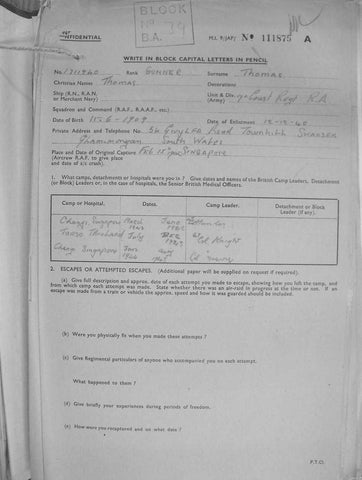 BLOCK
No 39
B.A.
CONFIDENTIAL
M.I. 9/JAP/ No 111875 A
WRITE IN BLOCK CAPITAL LETTERS IN PENCIL
No. Rank GUNNER Surname Thomas
Christian Names Thomas Decorations
Ship (R.N., R.A.N. or Merchant Navy) Unit & Div. (Army) Coast Regt R.A.
Squadron and Command (R.A.F., R.A.A.F. etc.)
Date of Birth 15.6.1909 Date of Enlistment 12.12.40
Private Address and Telephone No. Road Townhill Swansea
Glammorgan South Wales
Place and Date of Original Capture SINGAPORE
(Aircrew R.A.F. to give place
and date of a/c crash).
1. What camps, detachments or hospitals were you in? Give dates and names of the British Camp Leaders, Detachment
(or Block) Leaders or, in the case of hospitals, the Senior British Medical Officers.
Camp or Hospital. Dates. Camp Leader. Detachment or Block Leader (if any).
Changi, Singapore March June
Thailand July Dec Col Knight
Changi Singapore Jan
2. ESCAPES OR ATTEMPTED ESCAPES. (Additional paper will be supplied on request if required).
(a) Give full description and approx. date of each attempt you made to escape, showing how you left the camp, and
from which camp each attempt was made. State whether there was an air-raid in progress at the time or not. If an
escape was made from a train or vehicle the approx. speed and how it was guarded should be included.
(b) Were you physically fit when you made these attempts?
(c) Give Regimental particulars of anyone who accompanied you on each attempt.
What happened to them?
(d) Give briefly your experiences during periods of freedom.
(e) How were you recaptured and on what date?
P.T.O.